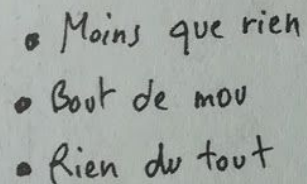 • Moins que rien
• Bout de mou
• Rien du tout